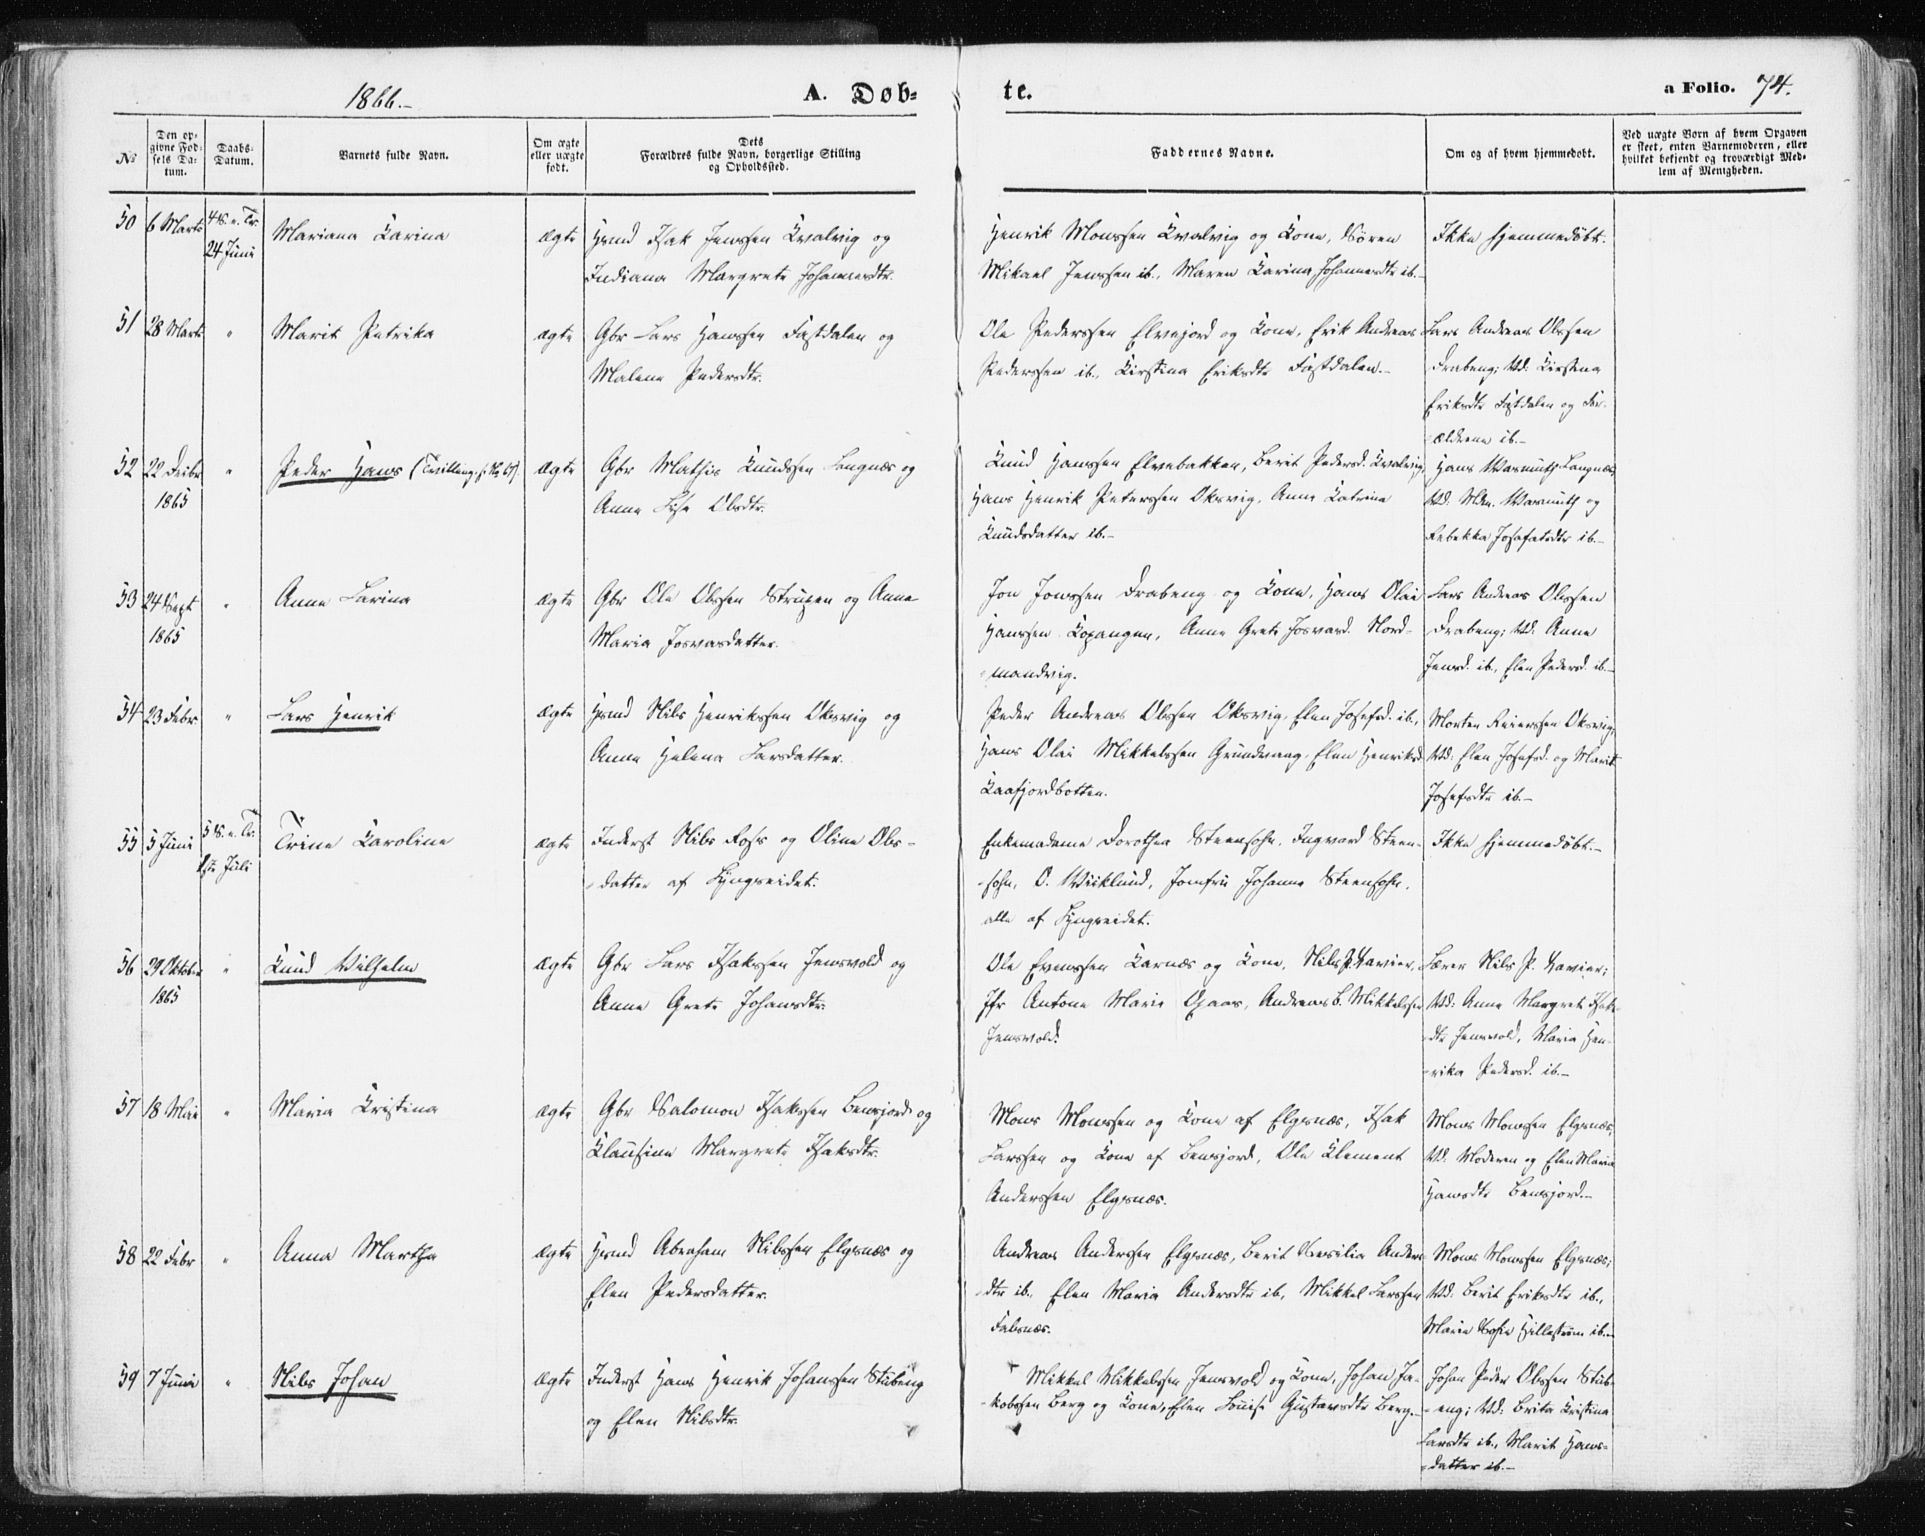 1866.-
A. Døb-
te.
a Folio. 74.
No
Den op-
givne Fød-
sels Da-
tum.
Daabs-
Datum.
Barnets fulde Navn.
Om ægte
eller uægte
født.
Dets
Forældres fulde Navn, borgerlige Stilling
og Opholdssted.
Faddernes Navne.
Om og af hvem hjemmedøbt.
Ved uægte Børn af hvem Opgaven
er skeet, enten Barnemoderen, eller
hvilket bekjendt og troværdigt Med-
lem af Menigheden.
50 6 Marts 4 S. e. Tr. 24 Juni Mariana Karina ægte Hmd Isak Jenssen Kvalvig og
Indiana Margrete Johannesdtr.
Henrik Monssen Kvalvig og Kone, Sören
Mikael Jenssen ib., Maren Karina Johannesdtr ib.-
Ikke hjemmedöbt.
51 28 Marts " Marit Petrika ægte Gbr Lars Hanssen Fastdalen og
Malene Pedersdtr.
Ole Pederssen Elvejord og Kone, Erik Andreas
Pederssen ib., Kirstina Eriksdtr Fastdalen.-
Lars Andreas Olssen
Drabeng; Vd: Kirstena
Eriksdtr Fastdalen og For-
-ældrene ib.-
52 22 Decbr 1865 " Peder Hans (Tvilling, ægte Gbr Mathis Knudssen Langnæs og
Anne Lise Olsdtr.
Knud Hanssen Elvebakken, Berit Pedersd. Kvalvig,
Hans Henrik Peterssen Oksvig, Anne Katrine
Knudsdatter ib.-
Hans Wasmuth Langnæs,
Vd. Mdm. Wasmuth og
Rebekka Josefatsdtr ib.-
53 24 Sept 1865 " Anne Larina ægte Gbr Ole Olssen Strupen og Anne
Maria Josvasdatter.
Jon Jonssen Drabeng og Kone, Hans Olai
Hanssen Kopangen, Anne Grete Josvard. Nord-
-mandvig.
Lars Andreas Olssen
Drabeng; Vd. Anne
Jensd. ib., Elen Pedersd. ib.-
54 23 Febr " Lars Henrik ægte Hmd Nils Henrikssen Oksvig og
Anne Helena Larsdatter.
Peder Andreas Olssen Oksvig, Elen Josefsd. ib.,
Hans Olai Mikkelssen Grundvaag, Elen Henriksd
Kaafjordbotten.
Morten Reierssen Oksvig;
Vd: Elen Josefsd. og Marit
Josefsdtr ib.-
55 5 Juni 5 S. e. Tr. 1ste Juli Trine Karoline ægte Inderst Nils Rosts og Oline Ols-
-datter af Lyngseidet.
Enkemadame Dorothea Steensohn, Ingvard Steen-
-sohn, O. Wiklund, Jomfru Johanne Steensohn,
alle af Lyngseidet.
Ikke hjemmedöbt.-
56 29 Oktober 1865 " Knud Vilhelm ægte Gbr Lars Isakssen Jensvold og
Anne Grete Johansdtr.
Ole Evenssen Karnæs og Kone, Nils P. Xavier,
Jfr Antone Marie Gjæver, Andreas B. Mikkelssen
Jensvold.
Lærer Nils P. Xavier;
Vd: Anne Margrete Isaks-
-dtr Jensvold, Maria Hen-
-rika Pedersd. ib.-
57 18 Mai " Maria Kristina ægte Gbr Salomon Isakssen Bensjord og
Klausine Margrete Isaksdtr.
Mons Monssen og Kone af Elgsnæs, Isak
Larssen og Kone af Bensjord, Ole Klement
Anderssen Elgsnæs.
Mons Monssen Elgsnæs;
Vd. Moderen og Elen Maria
Hansdtr Bensjord.-
58 22 Febr " Anna Martha ægte Hmd Abraham Nilssen Elgsnæs og
Elen Pedersdatter.
Andreas Anderssen Elgsnæs, Berit Cesilia Anders
-dtr ib., Elen Maria Andersdtr ib., Mikkel Larssen
Falsnæs.
Mons Monssen Elgsnæs;
Vd. Berit Eriksdtr ib.,
Maria Sofie Hilleström ib.-
59 7 Juni " Nils Johan ægte Inderst Hans Henrik Johanssen Stubeng
og Elen Nilsdtr.
Mikkel Mikkelssen Jensvold og Kone, Johan Ja-
-kobssen Berg og Kone, Elen Louise Gustavsdtr Berg.-
Johan Peder Olssen Stub-
-eng; Vd: Brita Kristina
Larsdtr ib., Marit Hans-
-datter ib.-